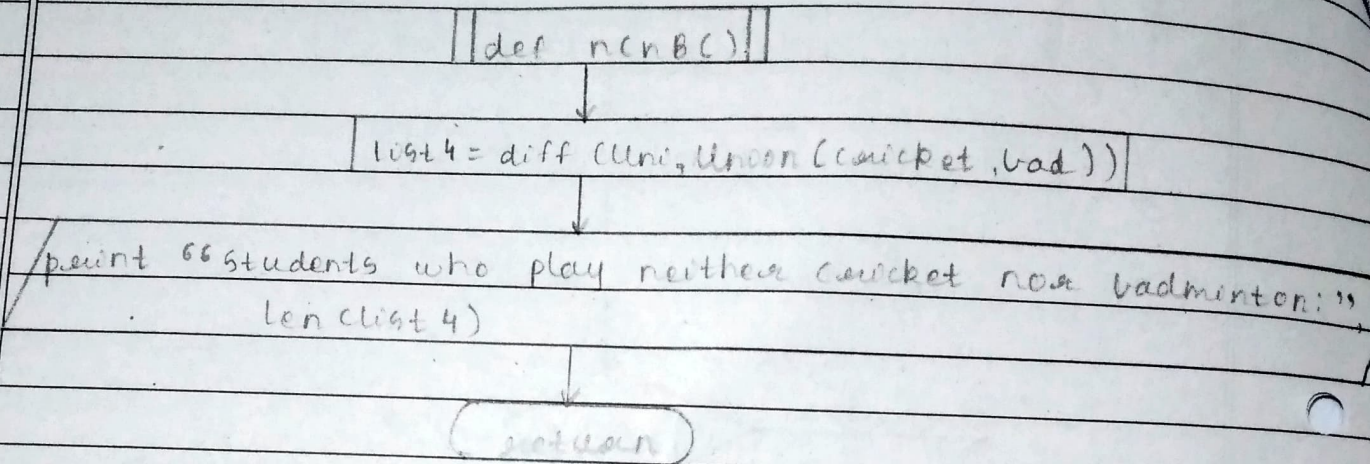 def nCnB()
list4 = diff (Uni, Union (cricket, bad))
print “Students who play neither cricket nor badminton:”,
len (list 4)
return